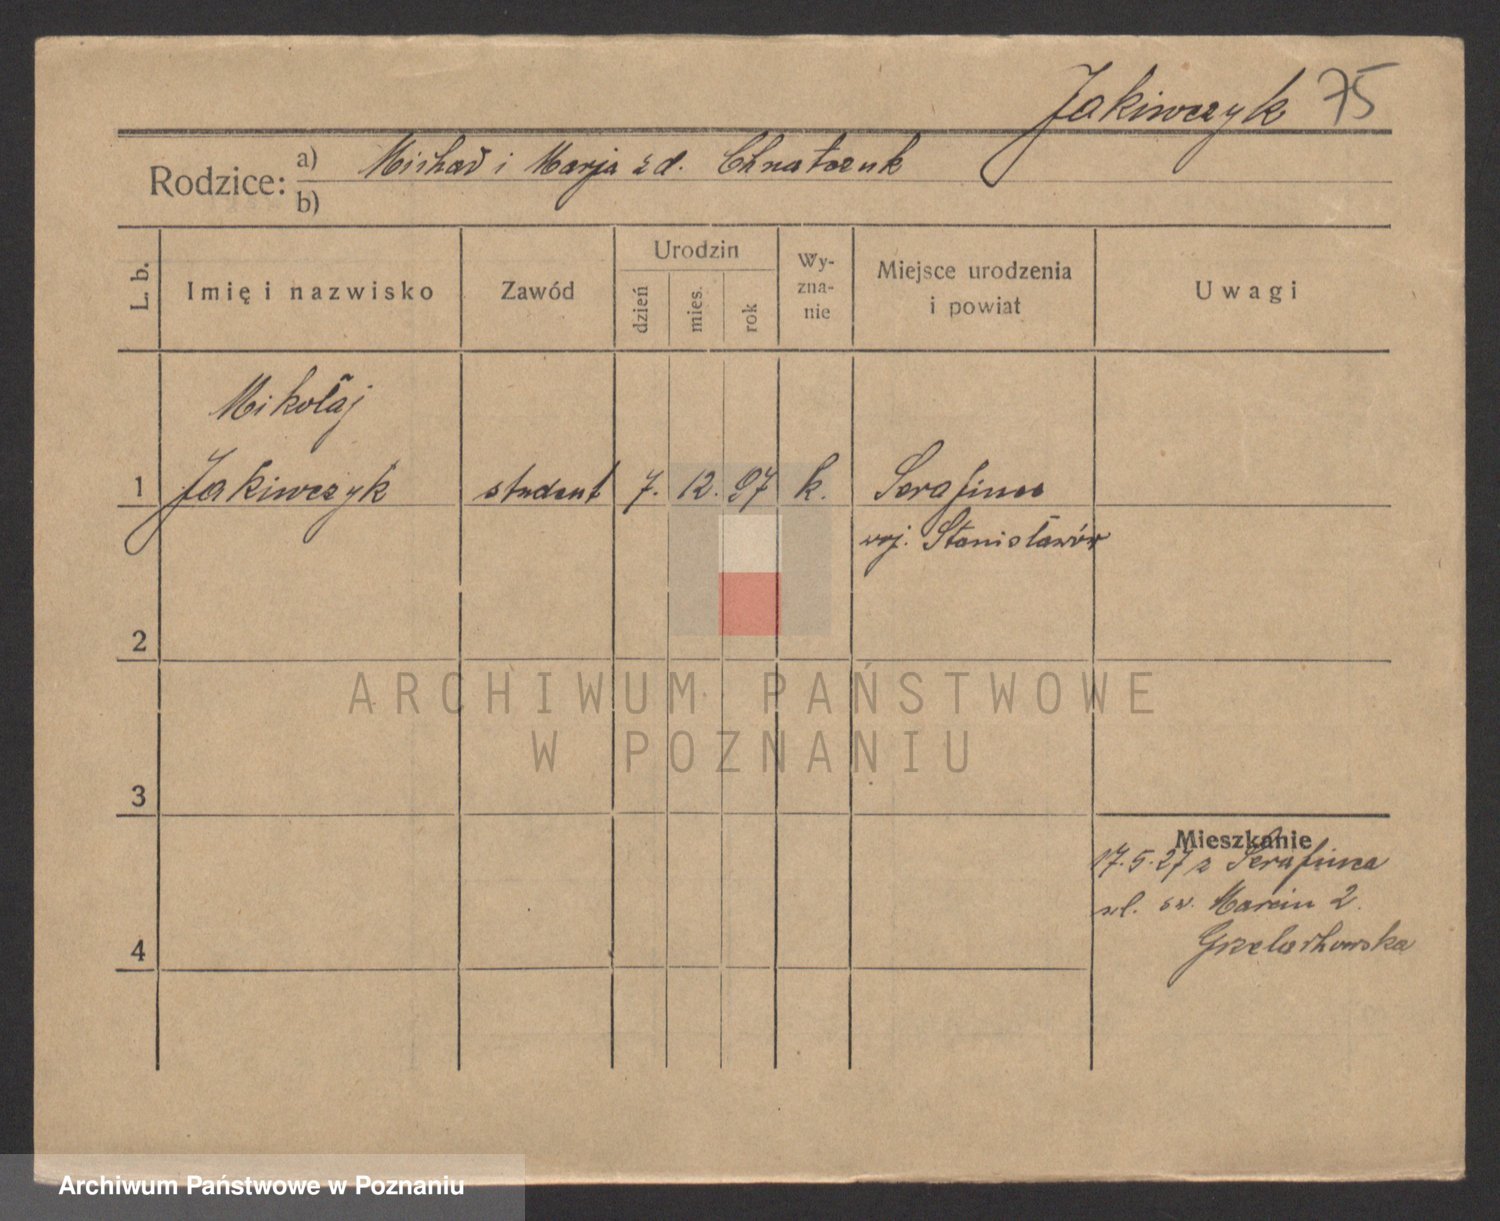 Jakiwczyk 75
Rodzice:
a) Michał i Marja zd. Chnatczuk
b)
L. b.
Imię i nazwisko
Zawód
Urodzin
dzień
mies.
rok
Wy-
zna-
nie
Miejsce urodzenia
i powiat
Uwagi
Mikołaj
1 Jakiwczyk student 7. 12. 97 k. Serafince
woj. Stanisławów
2
ARCHIWUM PAŃSTWOWE
W POZNANIU
3
Mieszkanie
17.5.27 z Serafince
ul. św. Marcin 2.
Grzelachowska
4
Archiwum Państwowe w Poznaniu